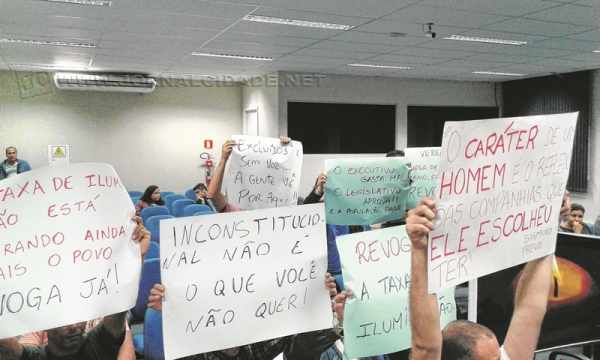 JORNALCIDADE.NET
TAXA DE ILUM
NÃO ESTÁ
RANDO AINDA
AIS O POVO
VOGA JÁ!
EXCLUÍDOS
SEM VOZ
A GENTE VÊ
POR AQUI
INCONSTITUCIO
NAL NÃO É
O QUE VOCÊ
NÃO QUER!
O EXECUTIVO
GASTA MAL
O LEGISLATIVO
APROVA
E A POPULAÇÃO
REVO
REVOGUE
A TAXA
ILUMI
O CARÁTER DE UM
HOMEM É O REFLEXO
DAS COMPANHIAS QUE
ELE ESCOLHEU
TER!